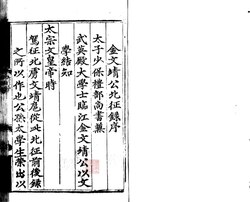 金文靖公北征錄序
太子少保禮部尚書兼
武英殿大學士臨江金文靖公以文
學結知
太宗文皇帝時
駕征北虜文靖扈從此北征前後錄
之所以作也公孫太學生榮出以